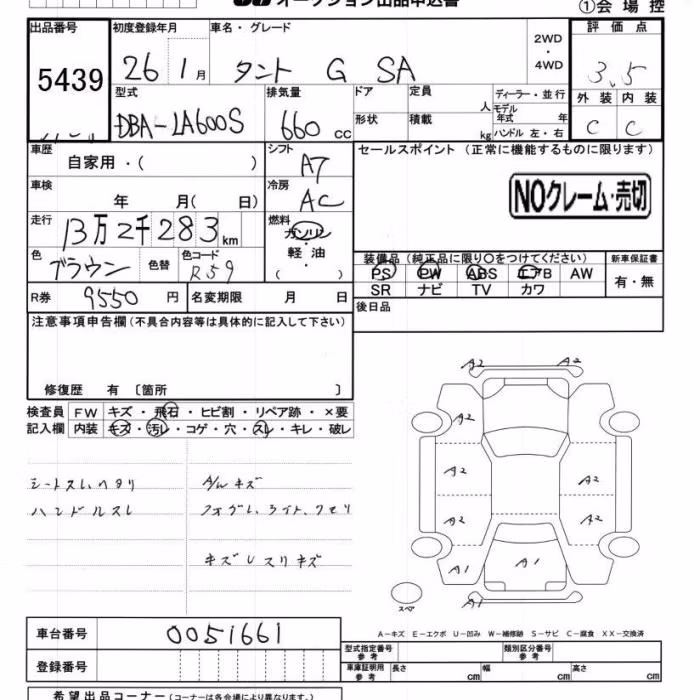 オークション出品申込書
①会場控
出品番号 初度登録年月 車名・グレード 2WD ・ 4WD 評価点
5439 26 1月 タント G SA 3.5
型式 排気量 ドア 定員 人 ディーラー・並行 外装 内装
モデル年式 年
DBA-LA600S 660 cc 形状 積載 kg ハンドル 左・右 C C
車歴 シフト セールスポイント (正常に機能するものに限ります)
自家用・( ) A7
車検 冷房 NOクレーム・売切
年 月( 日) AC
走行 13万2千283km 燃料 ガソリン ・ 軽油 ・ ( )
色 ブラウン 色替 色コード R59
装備品 (純正品に限り〇をつけてください) 新車保証書
PS PW ABS エアB AW 有・無
SR ナビ TV カワ
R券 9550 円 名変期限 月 日 後日品
注意事項申告欄(不具合内容等は具体的に記入して下さい)
修復歴 有 〔箇所 〕
検査員 FW キズ・飛石・ヒビ割・リペア跡・×要
記入欄 内装 キズ・汚レ・コゲ・穴・スレ・キレ・破レ
シートスレ、ヘタリ A/Wキズ
ハンドルスレ フォグレ、ライト、クモリ
キズレスリキズ
A2 A2
A2
A2 A2
A2 A2
A1 A1
A1
スペア
A-キズ E-エクボ U-凹み W-補修跡 S-サビ C-腐食 XX-交換済
車台番号 0051661
型式指定番号 参考 類別区分番号 参考
登録番号 車庫証明用 参考 長さ cm 幅 cm 高さ cm
希望出品コーナー(コーナーは各会場により異なります)